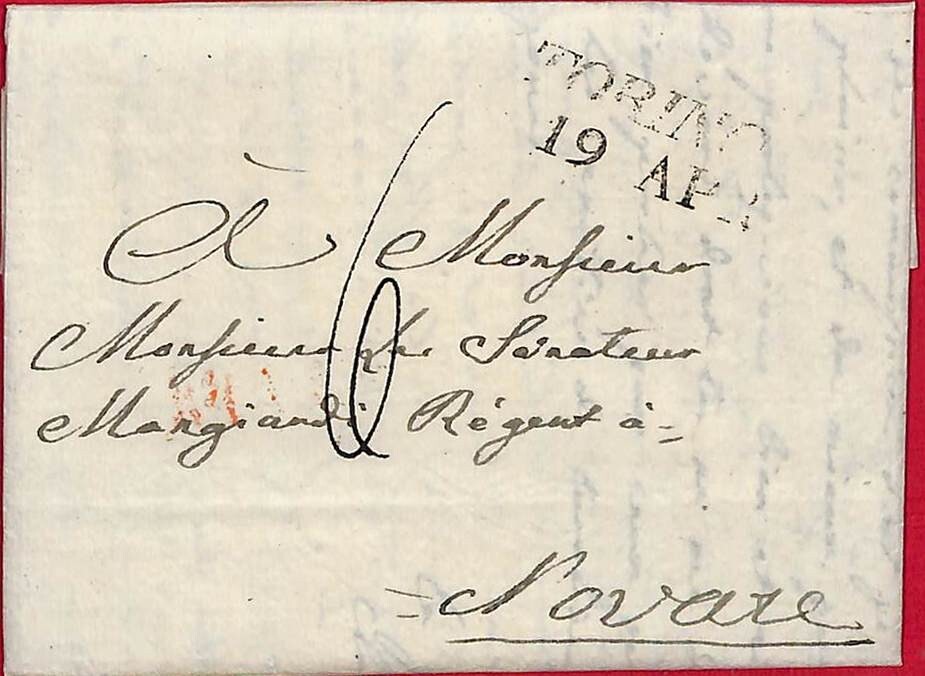 TORINO
19 APR
6
À Monsieur
Monsieur Le Sénateur
Mangiandi Régent à =
= Novare